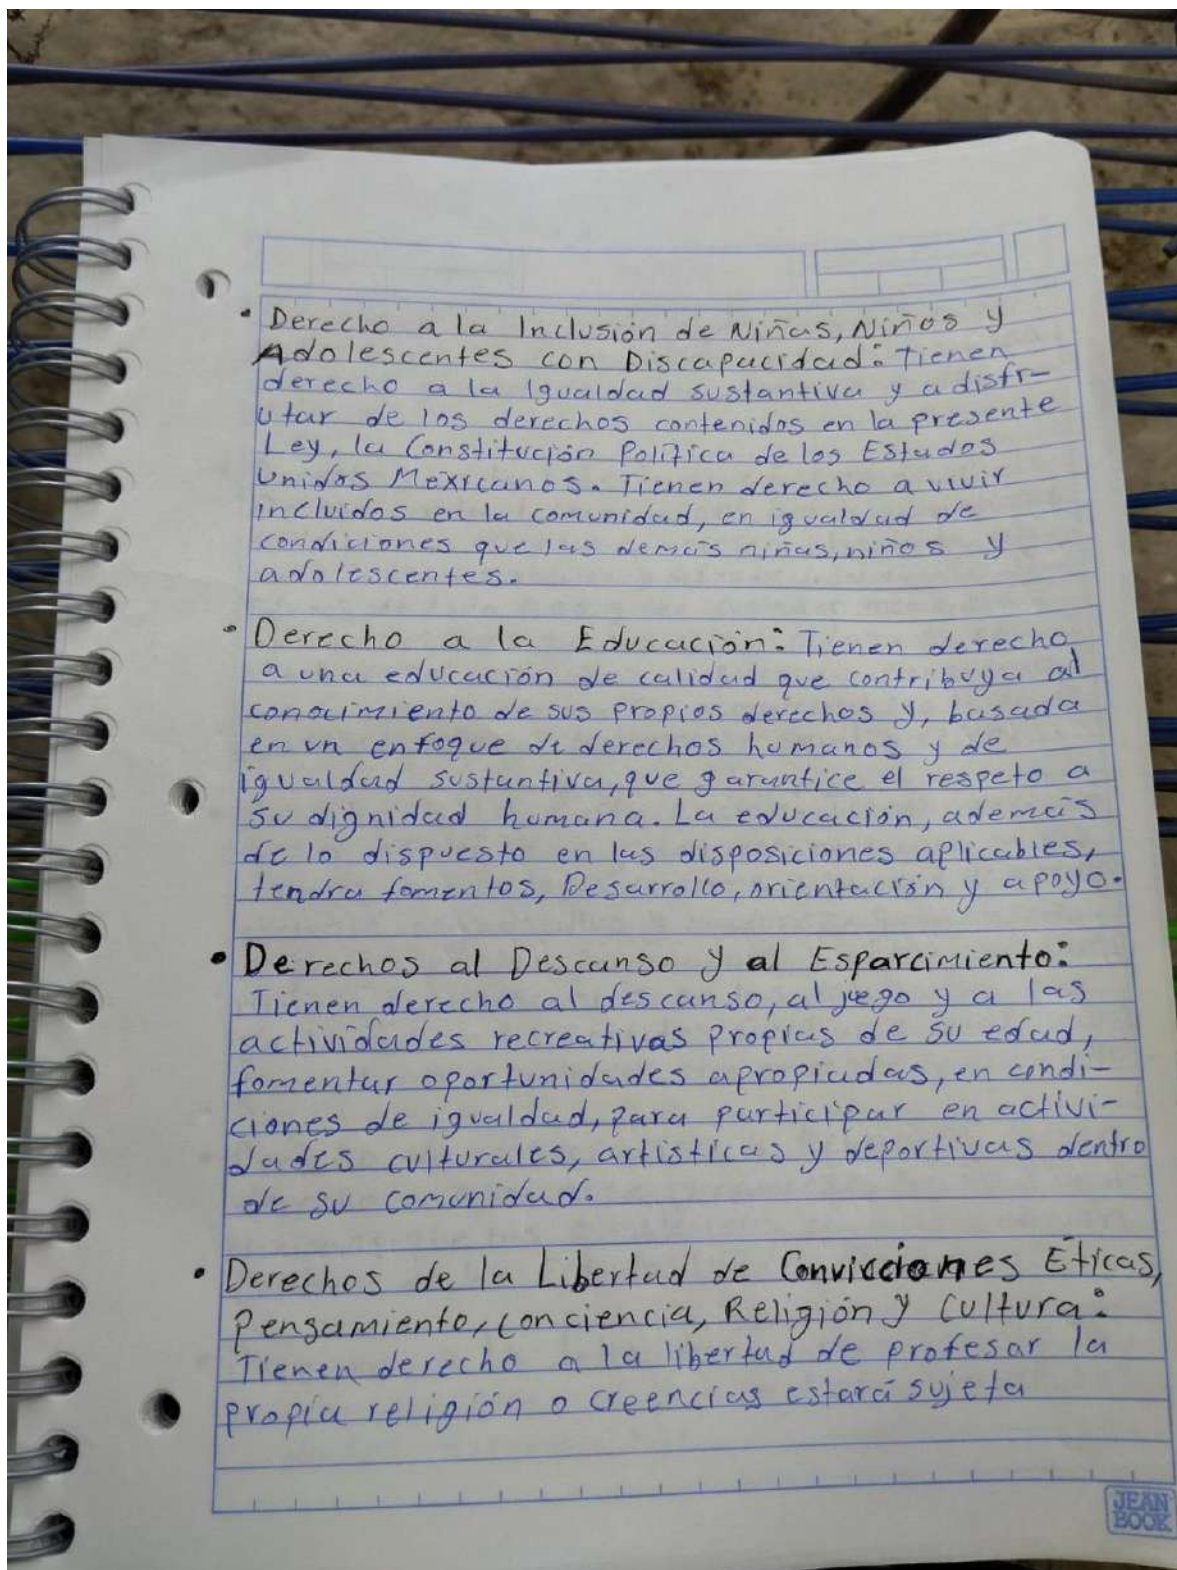 • Derecho a la Inclusión de Niñas, Niños y
Adolescentes con Discapacidad: Tienen
derecho a la Igualdad sustantiva y a disfr-
utar de los derechos contenidos en la presente
Ley, la Constitución Política de los Estados
Unidos Mexicanos. Tienen derecho a vivir
incluidos en la comunidad, en igualdad de
condiciones que las demás niñas, niños y
adolescentes.
• Derecho a la Educación: Tienen derecho
a una educación de calidad que contribuya al
conocimiento de sus propios derechos y, basada
en un enfoque de derechos humanos y de
igualdad sustantiva, que garantice el respeto a
su dignidad humana. La educación, además
de lo dispuesto en las disposiciones aplicables,
tendra fomentos, Desarrollo, orientación y apoyo.
• Derechos al Descanso y al Esparcimiento:
Tienen derecho al descanso, al juego y a las
actividades recreativas propias de su edad,
fomentar oportunidades apropiadas, en condi-
ciones de igualdad, para participar en activi-
dades culturales, artísticas y deportivas dentro
de su comunidad.
• Derechos de la Libertad de Convicciones Éticas,
Pensamiento, conciencia, Religión y cultura:
Tienen derecho a la libertad de profesar la
propia religión o creencias estará sujeta
JEAN
BOOK